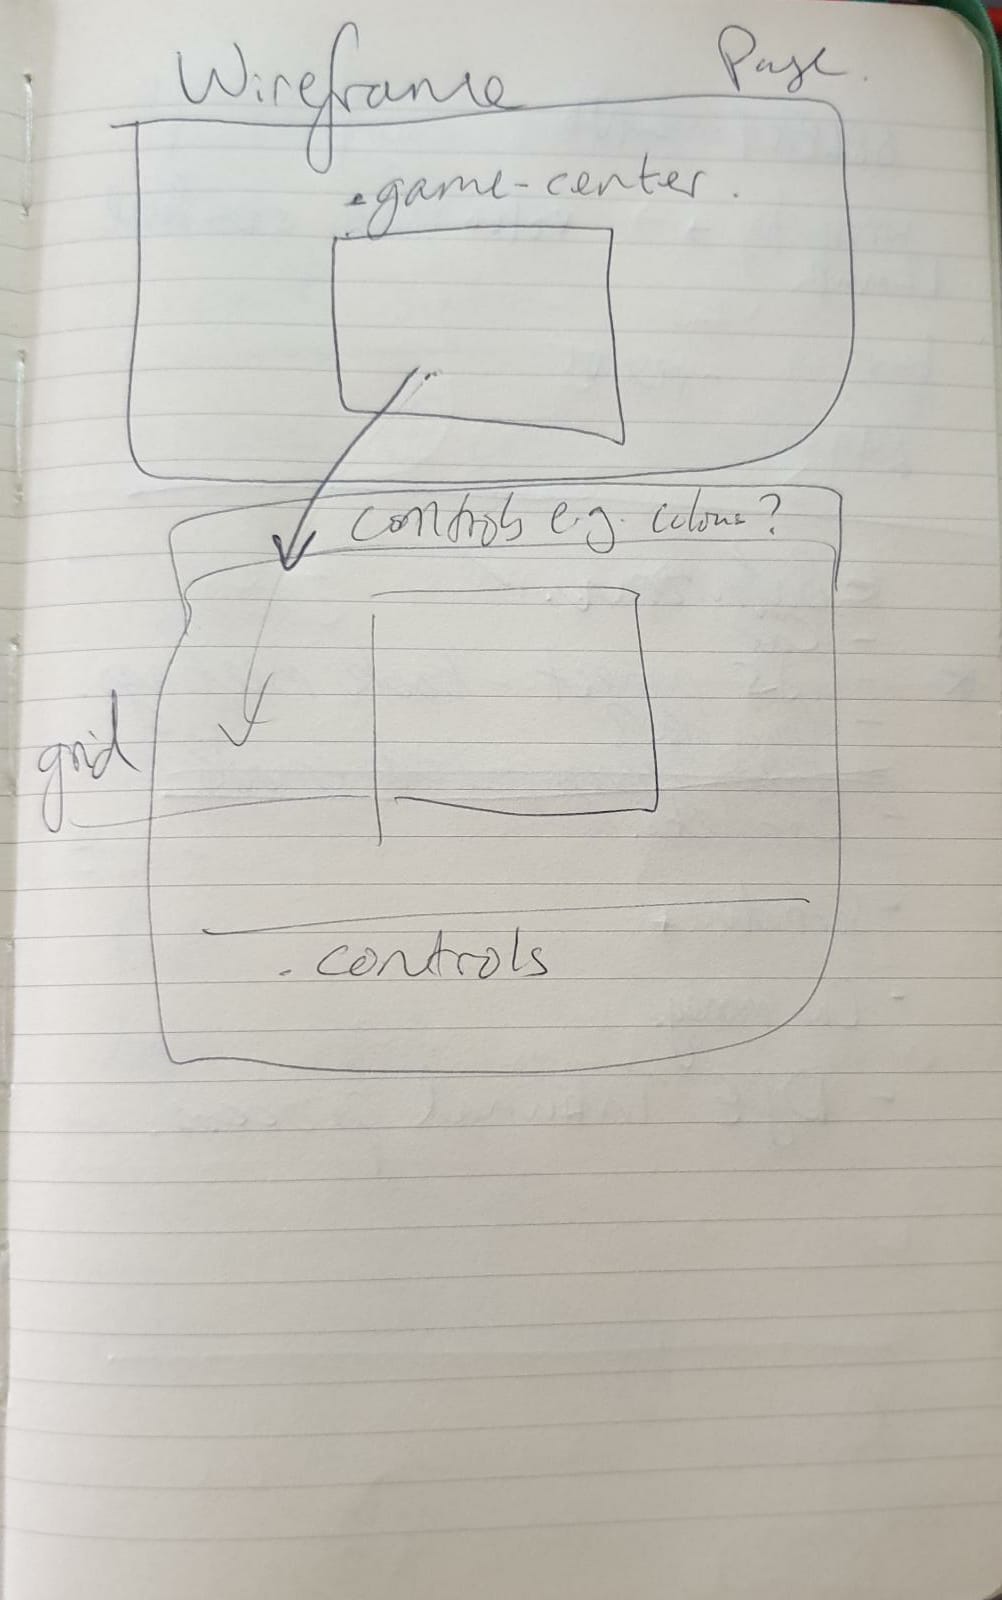 Wireframe Page.
.game-center.
controls e.g. colour?
grid
.controls